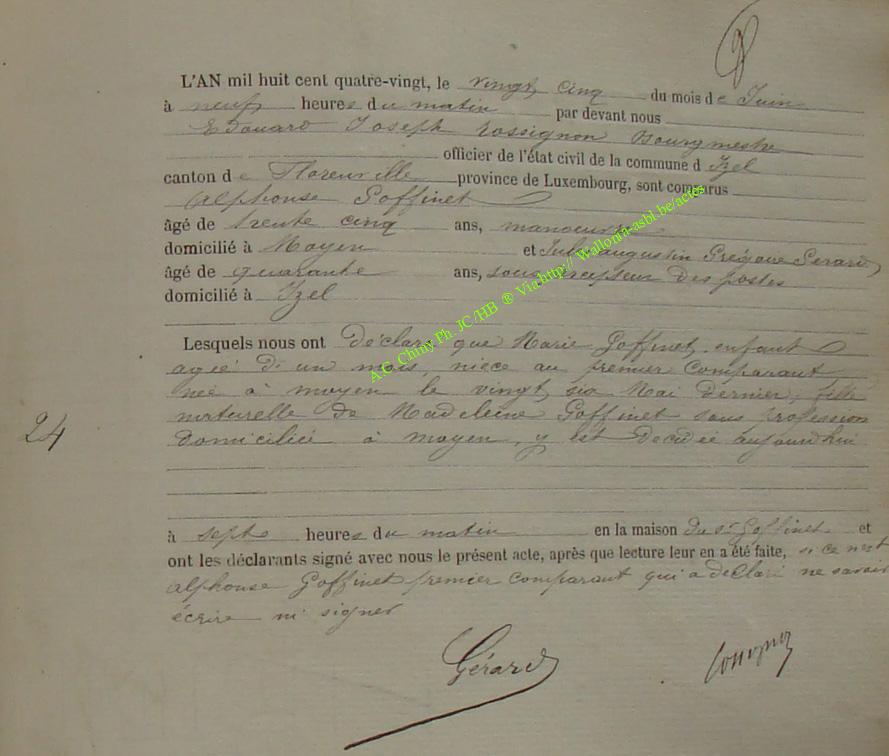 L'AN mil huit cent quatre-vingt, le vingt cinq du mois de Juin
à neuf heures du matin par devant nous
Edouard Joseph Rossignon Bourgmestre
officier de l'état civil de la commune d Izel
canton de Florenville province de Luxembourg, sont comparus
Alphonse Goffinet
âgé de trente cinq ans, manoeuvre
domicilié à Moyen et Jules augustin Grégoire Gerard
âgé de quarante ans, sous percepteur des postes
domicilié à Izel
A.G. Chiny Ph JC/HB ® Via http:// Wallonia-asbl.be/actes
Lesquels nous ont déclaré que Marie Goffinet enfant
agée d'un mois, niece au premier Comparant
née à moyen le vingt six Mai dernier, fille
naturelle de Madeleine Goffinet sans profession
24
domiciliée à moyen, y est décédée aujourdhui
à sept heures du matin en la maison du sr Goffinet et
ont les déclarants signé avec nous le présent acte, après que lecture leur en a été faite, si ce n'est
alphonse Goffinet premier comparant qui a déclaré ne savoir
écrire ni signer
Gérard
Rossignon